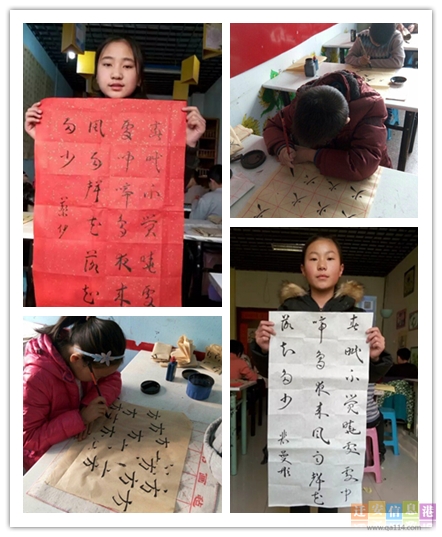 春眠不觉晓处
处闻啼鸟夜来
风雨声花落知
多少
春眠不觉晓处处闻
啼鸟夜来风雨声花
落知多少
方方方
迁安信息港
www.qa114.com